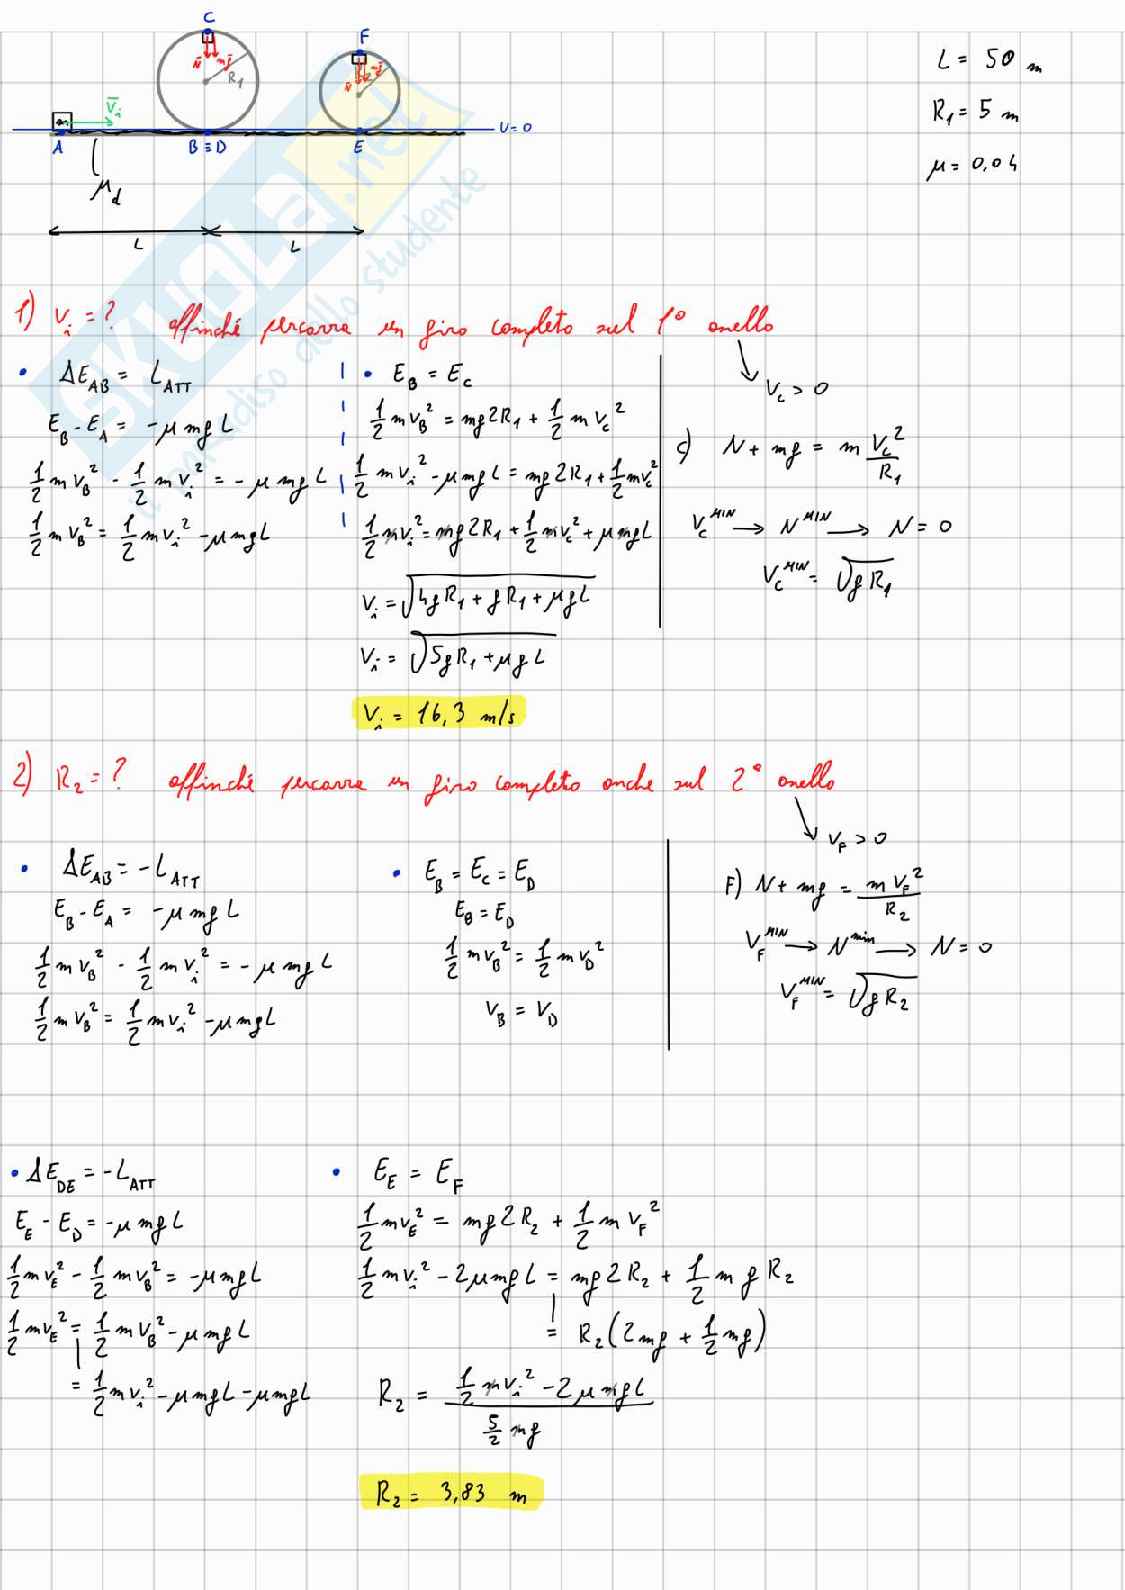 C
F
N mg R₁
N mg
L = 50 m
R₁ = 5 m
μ = 0,04
m V̄ᵢ
U=0
A B≡D E
μ_d
L L
SKUOLA.net
paradiso dello studente
1) Vᵢ = ? affinché percorra un giro completo sul 1° anello
V_C > 0
• ΔE_AB = L_ATT
E_B - E_A = -μmgL
½mV_B² - ½mVᵢ² = -μmgL
½mV_B² = ½mVᵢ² - μmgL
• E_B = E_C
½mV_B² = mg2R₁ + ½mV_C²
½mVᵢ² - μmgL = mg2R₁ + ½mV_C²
½mVᵢ² = mg2R₁ + ½mV_C² + μmgL
Vᵢ = √(4gR₁ + gR₁ + μgL)
Vᵢ = √(5gR₁ + μgL)
Vᵢ = 16,3 m/s
C) N + mg = m V_C²/R₁
V_C^MIN → N^MIN → N = 0
V_C^MIN = √(gR₁)
2) R₂ = ? affinché percorra un giro completo anche sul 2° anello
V_F > 0
• ΔE_AB = -L_ATT
E_B - E_A = -μmgL
½mV_B² - ½mVᵢ² = -μmgL
½mV_B² = ½mVᵢ² - μmgL
• E_B = E_C = E_D
E_B = E_D
½mV_B² = ½mV_D²
V_B = V_D
F) N + mg = mV_F²/R₂
V_F^MIN → N^min → N = 0
V_F^MIN = √(gR₂)
• ΔE_DE = -L_ATT
E_E - E_D = -μmgL
½mV_E² - ½mV_B² = -μmgL
½mV_E² = ½mV_B² - μmgL
= ½mVᵢ² - μmgL - μmgL
• E_E = E_F
½mV_E² = mg2R₂ + ½mV_F²
½mVᵢ² - 2μmgL = mg2R₂ + ½mgR₂
= R₂(2mg + ½mg)
R₂ = (½mVᵢ² - 2μmgL)/(5/2 mg)
R₂ = 3,83 m